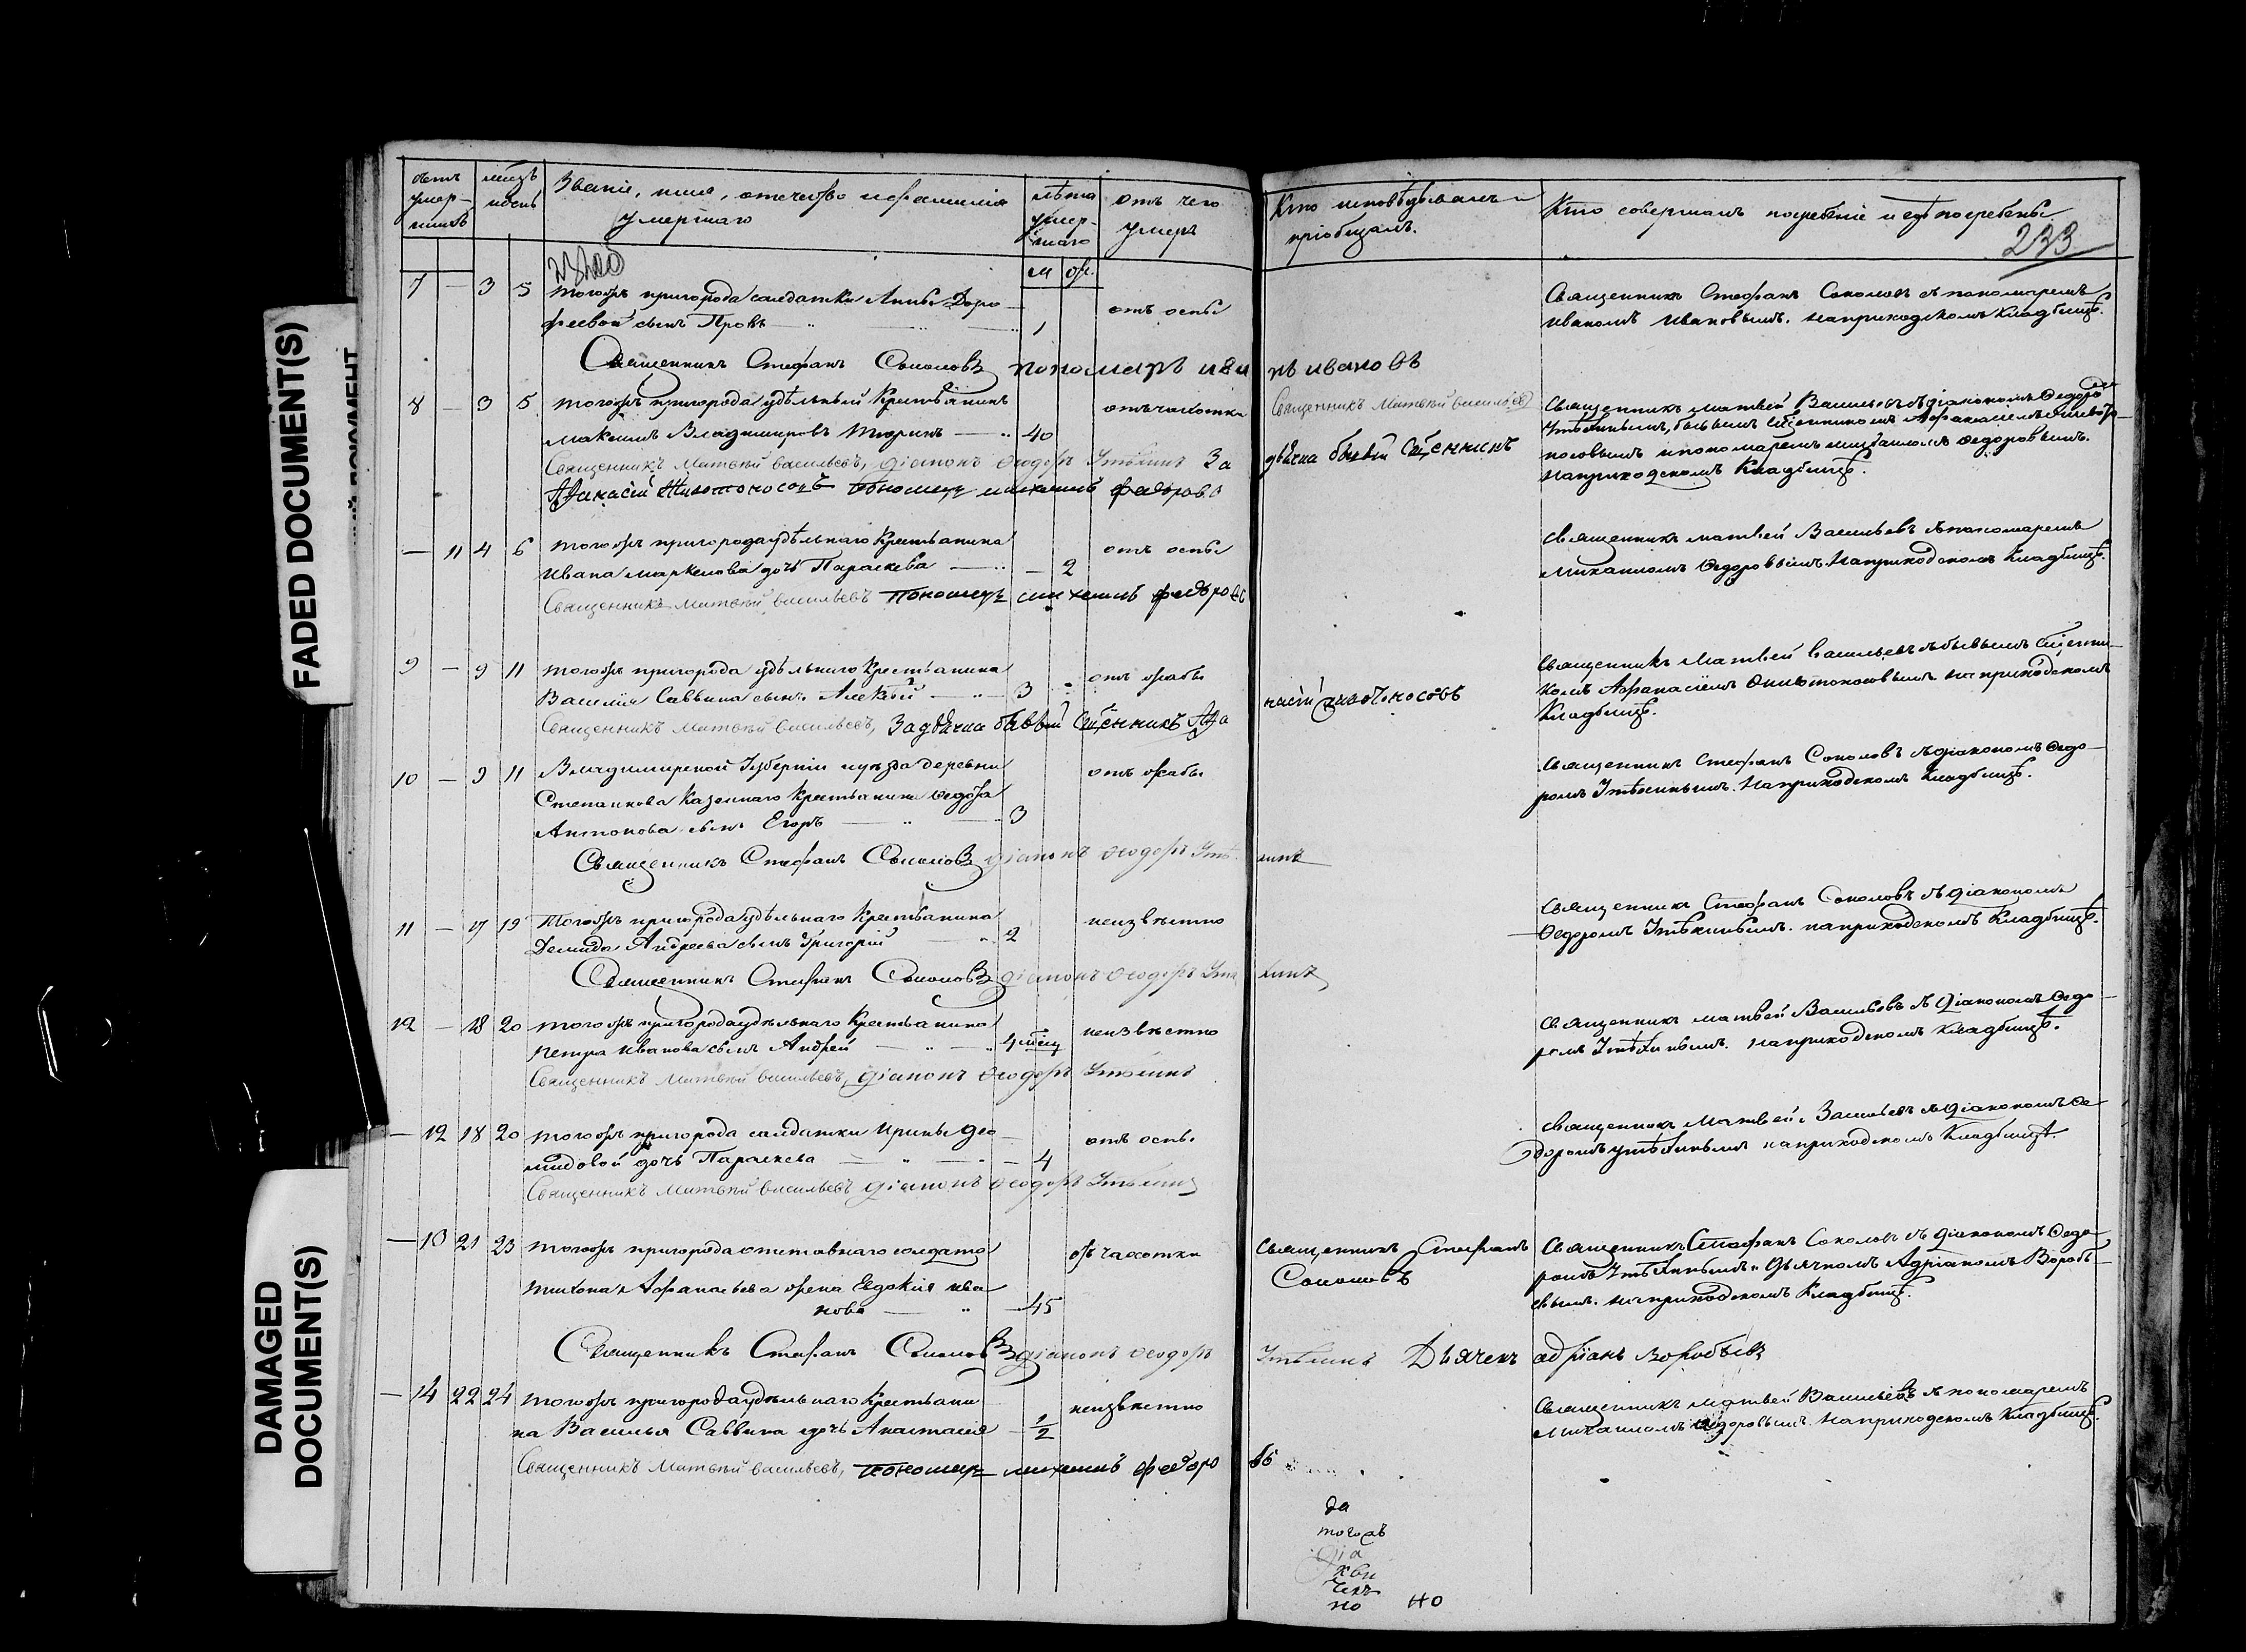 FADED DOCUMENT(S)
DAMAGED DOCUMENT(S)
счетъ умер-шихъ
мѣсяцъ и день
Званіе, имя, отечество и фамилія умершаго
лѣта умер-шаго
отъ чего умеръ
Кто исповѣдывалъ и пріобщалъ.
Кто совершалъ погребеніе и гдѣ погребены.
233
м ж.
7 — 3 5 тогожъ пригорода салдатки Анны Доро-
феевой сынъ Провъ — 1
отъ оспы
Священникъ Стефанъ Соколовъ съ пономаремъ
Иваномъ Ивановымъ. на приходскомъ кладбищѣ.
Священникъ Стефанъ Соколовъ пономарь иванъ ивановъ
8 — 3 5 тогожъ пригорода удѣльный крестьянинъ
Максимъ Владимировъ Тюринъ — 40
отъ чахотки
Священникъ Матвѣй Васильевъ
Священникъ Матвей Васильевъ съ діакономъ Федоро
на приходскомъ кладбищѣ.
Священникъ Матвѣй Васильевъ, діаконъ Ѳеодоръ Утѣхинъ За дьячка бывый Сщенникъ
Афанасій Животоносовъ Пономарь михаилъ федоровъ
— 11 4 6 тогожъ пригорода удѣльнаго крестьянина
Ивана Маркелова дочь Параскева — 2
отъ оспы
Священникъ Матвей Васильевъ съ пономаремъ
Михаиломъ Федоровымъ. На приходскомъ кладбищѣ.
Священникъ Матвѣй Васильевъ Пономарь михаилъ федоровъ
9 — 9 11 тогожъ пригорода удѣльнаго крестьянина
Василія Саввина сынъ Алексѣй — 3
отъ жабы
Священникъ Матвей Васильевъ съ бывымъ сщенни-
комъ Афанасіемъ Животоносовымъ на приходскомъ
кладбищѣ.
Священникъ Матвѣй Васильевъ, За дьячка бывый Сщенникъ Афанасій Животоносовъ
10 — 9 11 Владимирской Губерніи и уѣзда деревни
Степанкова казеннаго крестьянина Федора
Антонова сынъ Егоръ — 3
отъ жабы
Священникъ Стефанъ Соколовъ съ діакономъ Федо-
ромъ Утѣхинымъ. На приходскомъ кладбищѣ.
Священникъ Стефанъ Соколовъ діаконъ Ѳеодоръ Утѣхинъ
11 — 17 19 Тогожъ пригорода удѣльнаго крестьянина
Демида Андреева сынъ Григорій 2
неизвѣстно
Священникъ Стефанъ Соколовъ съ діакономъ
Федоромъ Утѣхинымъ. на приходскомъ кладбищѣ.
Священникъ Стефанъ Соколовъ діаконъ Ѳеодоръ Утѣхинъ
12 — 18 20 тогожъ пригорода удѣльнаго крестьянина
Петра Иванова сынъ Андрей — 4 мѣсяц
неизвѣстно
Священникъ Матвей Васильевъ съ діакономъ Федо-
ромъ Утѣхинымъ. на приходскомъ кладбищѣ.
Священникъ Матвѣй Васильевъ, діаконъ Ѳеодоръ Утѣхинъ
— 12 18 20 тогожъ пригорода салдатки Ирины Део-
мидовой дочь Параскева — 4
отъ оспы
Священникъ Матвей Васильевъ съ діакономъ Фе-
доромъ Утѣхинымъ на приходскомъ кладбищѣ.
Священникъ Матвѣй Васильевъ діаконъ Ѳеодоръ Утѣхинъ
— 13 21 23 тогожъ пригорода отставнаго солдата
Тихона Афанасьева жена Евдокія Ива
нова — 45
отъ чахотки
Священникъ Стефанъ
Соколовъ
Священникъ Стефанъ Соколовъ съ діакономъ Федо-
ромъ Утѣхинымъ и дьячкомъ Адріаномъ Воробь-
евымъ. на приходскомъ кладбищѣ.
Священникъ Стефанъ Соколовъ діаконъ Ѳеодоръ Утѣхинъ Дьячекъ адріанъ Воробьевъ
— 14 22 24 тогожъ пригорода удѣльнаго крестьяни
на Василья Саввина дочь Анастасія — 1/2
неизвѣстно
Священникъ Матвей Васильевъ съ пономаремъ
Михаиломъ Федоровымъ. На приходскомъ кладбищѣ.
Священникъ Матвѣй Васильевъ, Пономарь михаилъ федоровъ
да
діа
но но